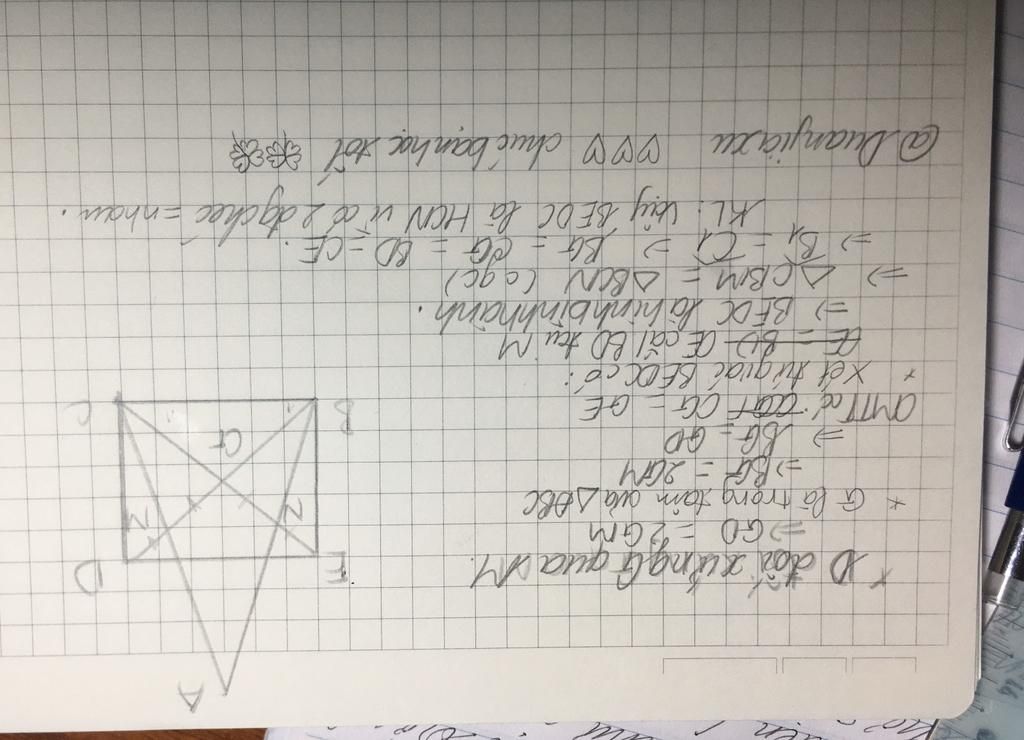 A
E
D
N
M
G
B
C
* D đối xứng G qua M.
⇒ GD = 2GM
* G là trọng tâm của ΔABC
⇒ BG = 2GM
⇒ BG = GD
CMTT có CG = GE
* Xét tứ giác BEDC có:
CE = BD CE cắt BD tại M
⇒ BEDC là hình bình hành.
⇒ ΔCBM = ΔBCN (cgc)
⇒ B1 = C1 ⇒ BG = CG = BD = CE.
KL: Vậy BEDC là HCN vì có 2 đg chéo = nhau.
@Duanjiaxu ♡♡♡ chúc bạn học tốt